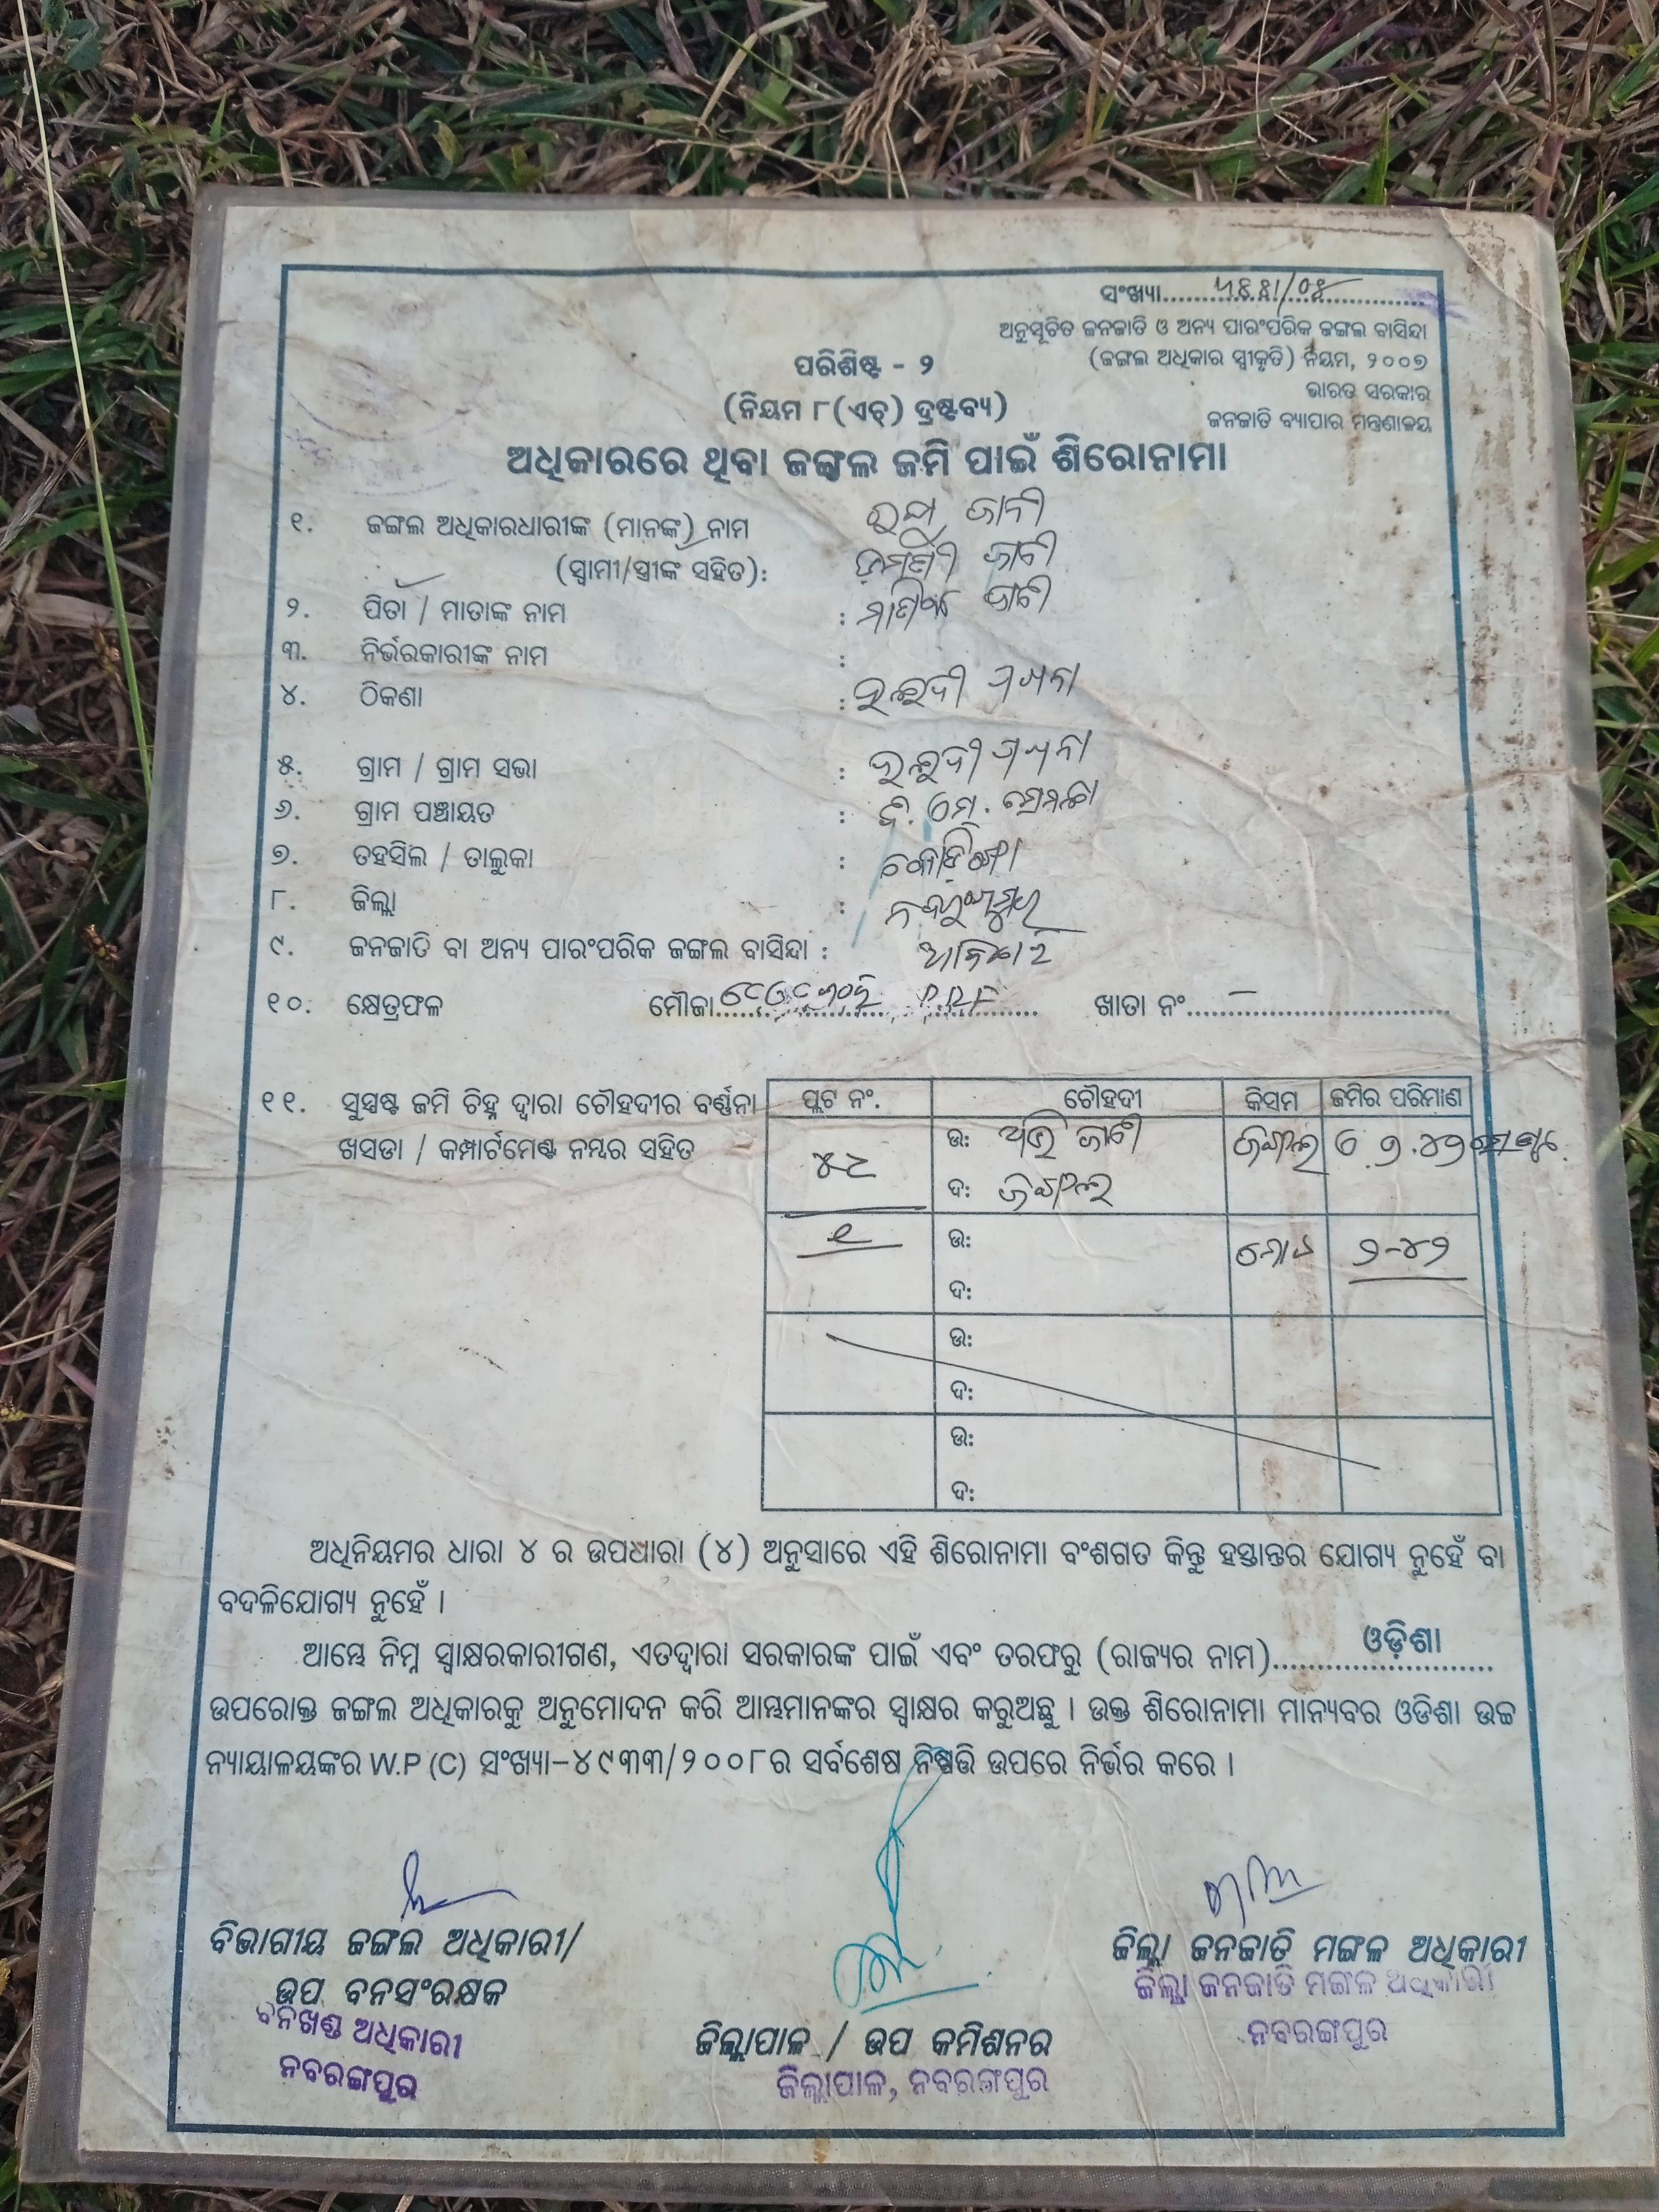 ସଂଖ୍ୟା
ଅନୁସୂଚିତ ଜନଜାତି ଓ ଅନ୍ୟ ପାରଂପରିକ ଜଙ୍ଗଲ ବାସିନ୍ଦା
(ଜଙ୍ଗଲ ଅଧିକାର ସ୍ୱୀକୃତି) ନିୟମ, ୨୦୦୭
ଭାରତ ସରକାର
ଜନଜାତି ବ୍ୟାପାର ମନ୍ତ୍ରଣାଳୟ
ପରିଶିଷ୍ଟ - ୨
(ନିୟମ ୮(ଏଚ୍) ଦ୍ରଷ୍ଟବ୍ୟ)
ଅଧିକାରରେ ଥିବା ଜଙ୍ଗଲ ଜମି ପାଇଁ ଶିରୋନାମା
୧. ଜଙ୍ଗଲ ଅଧିକାରଧାରୀଙ୍କ (ମାନଙ୍କ) ନାମ ଜାନୀ
(ସ୍ୱାମୀ/ସ୍ତ୍ରୀଙ୍କ ସହିତ): ଜାନୀ
୨. ପିତା / ମାତାଙ୍କ ନାମ : ଜାନୀ
୩. ନିର୍ଭରକାରୀଙ୍କ ନାମ :
୪. ଠିକଣା :
୫. ଗ୍ରାମ / ଗ୍ରାମ ସଭା :
୬. ଗ୍ରାମ ପଞ୍ଚାୟତ :
୭. ତହସିଲ / ତାଲୁକା : କୋଡିଙ୍ଗା
୮. ଜିଲ୍ଲା : ନବରଙ୍ଗପୁର
୯. ଜନଜାତି ବା ଅନ୍ୟ ପାରଂପରିକ ଜଙ୍ଗଲ ବାସିନ୍ଦା :
୧୦. କ୍ଷେତ୍ରଫଳ ମୌଜା P.R.F ଖାତା ନଂ -
୧୧. ସୁସ୍ପଷ୍ଟ ଜମି ଚିହ୍ନ ଦ୍ୱାରା ଚୌହଦୀର ବର୍ଣ୍ଣନା
ଖସଡା / କମ୍ପାର୍ଟମେଣ୍ଟ ନମ୍ବର ସହିତ
ପ୍ଲଟ ନଂ. ଚୌହଦୀ କିସମ ଜମିର ପରିମାଣ
ଉ: ଜାନୀ ଜଙ୍ଗଲ
ଦ: ଜଙ୍ଗଲ
୧ ଉ: ମୋଟ ୨-୪୨
ଦ:
ଉ:
ଦ:
ଉ:
ଦ:
ଅଧିନିୟମର ଧାରା ୪ ର ଉପଧାରା (୪) ଅନୁସାରେ ଏହି ଶିରୋନାମା ବଂଶଗତ କିନ୍ତୁ ହସ୍ତାନ୍ତର ଯୋଗ୍ୟ ନୁହେଁ ବା
ବଦଳିଯୋଗ୍ୟ ନୁହେଁ ।
ଆମ୍ଭେ ନିମ୍ନ ସ୍ୱାକ୍ଷରକାରୀଗଣ, ଏତଦ୍ୱାରା ସରକାରଙ୍କ ପାଇଁ ଏବଂ ତରଫରୁ (ରାଜ୍ୟର ନାମ) ଓଡ଼ିଶା
ଉପରୋକ୍ତ ଜଙ୍ଗଲ ଅଧିକାରକୁ ଅନୁମୋଦନ କରି ଆମ୍ଭମାନଙ୍କର ସ୍ୱାକ୍ଷର କରୁଅଛୁ । ଉକ୍ତ ଶିରୋନାମା ମାନ୍ୟବର ଓଡିଶା ଉଚ୍ଚ
ନ୍ୟାୟାଳୟଙ୍କର W.P (C) ସଂଖ୍ୟା-୪୯୩୩/୨୦୦୮ର ସର୍ବଶେଷ ନିଷ୍ପତ୍ତି ଉପରେ ନିର୍ଭର କରେ ।
ବିଭାଗୀୟ ଜଙ୍ଗଲ ଅଧିକାରୀ/
ଉପ ବନସଂରକ୍ଷକ
ବନଖଣ୍ଡ ଅଧିକାରୀ
ନବରଙ୍ଗପୁର
ଜିଲ୍ଲାପାଳ / ଉପ କମିଶନର
ଜିଲ୍ଲାପାଳ, ନବରଙ୍ଗପୁର
ଜିଲ୍ଲା ଜନଜାତି ମଙ୍ଗଳ ଅଧିକାରୀ
ଜିଲ୍ଲା ଜନଜାତି ମଙ୍ଗଳ ଅଧିକାରୀ
ନବରଙ୍ଗପୁର